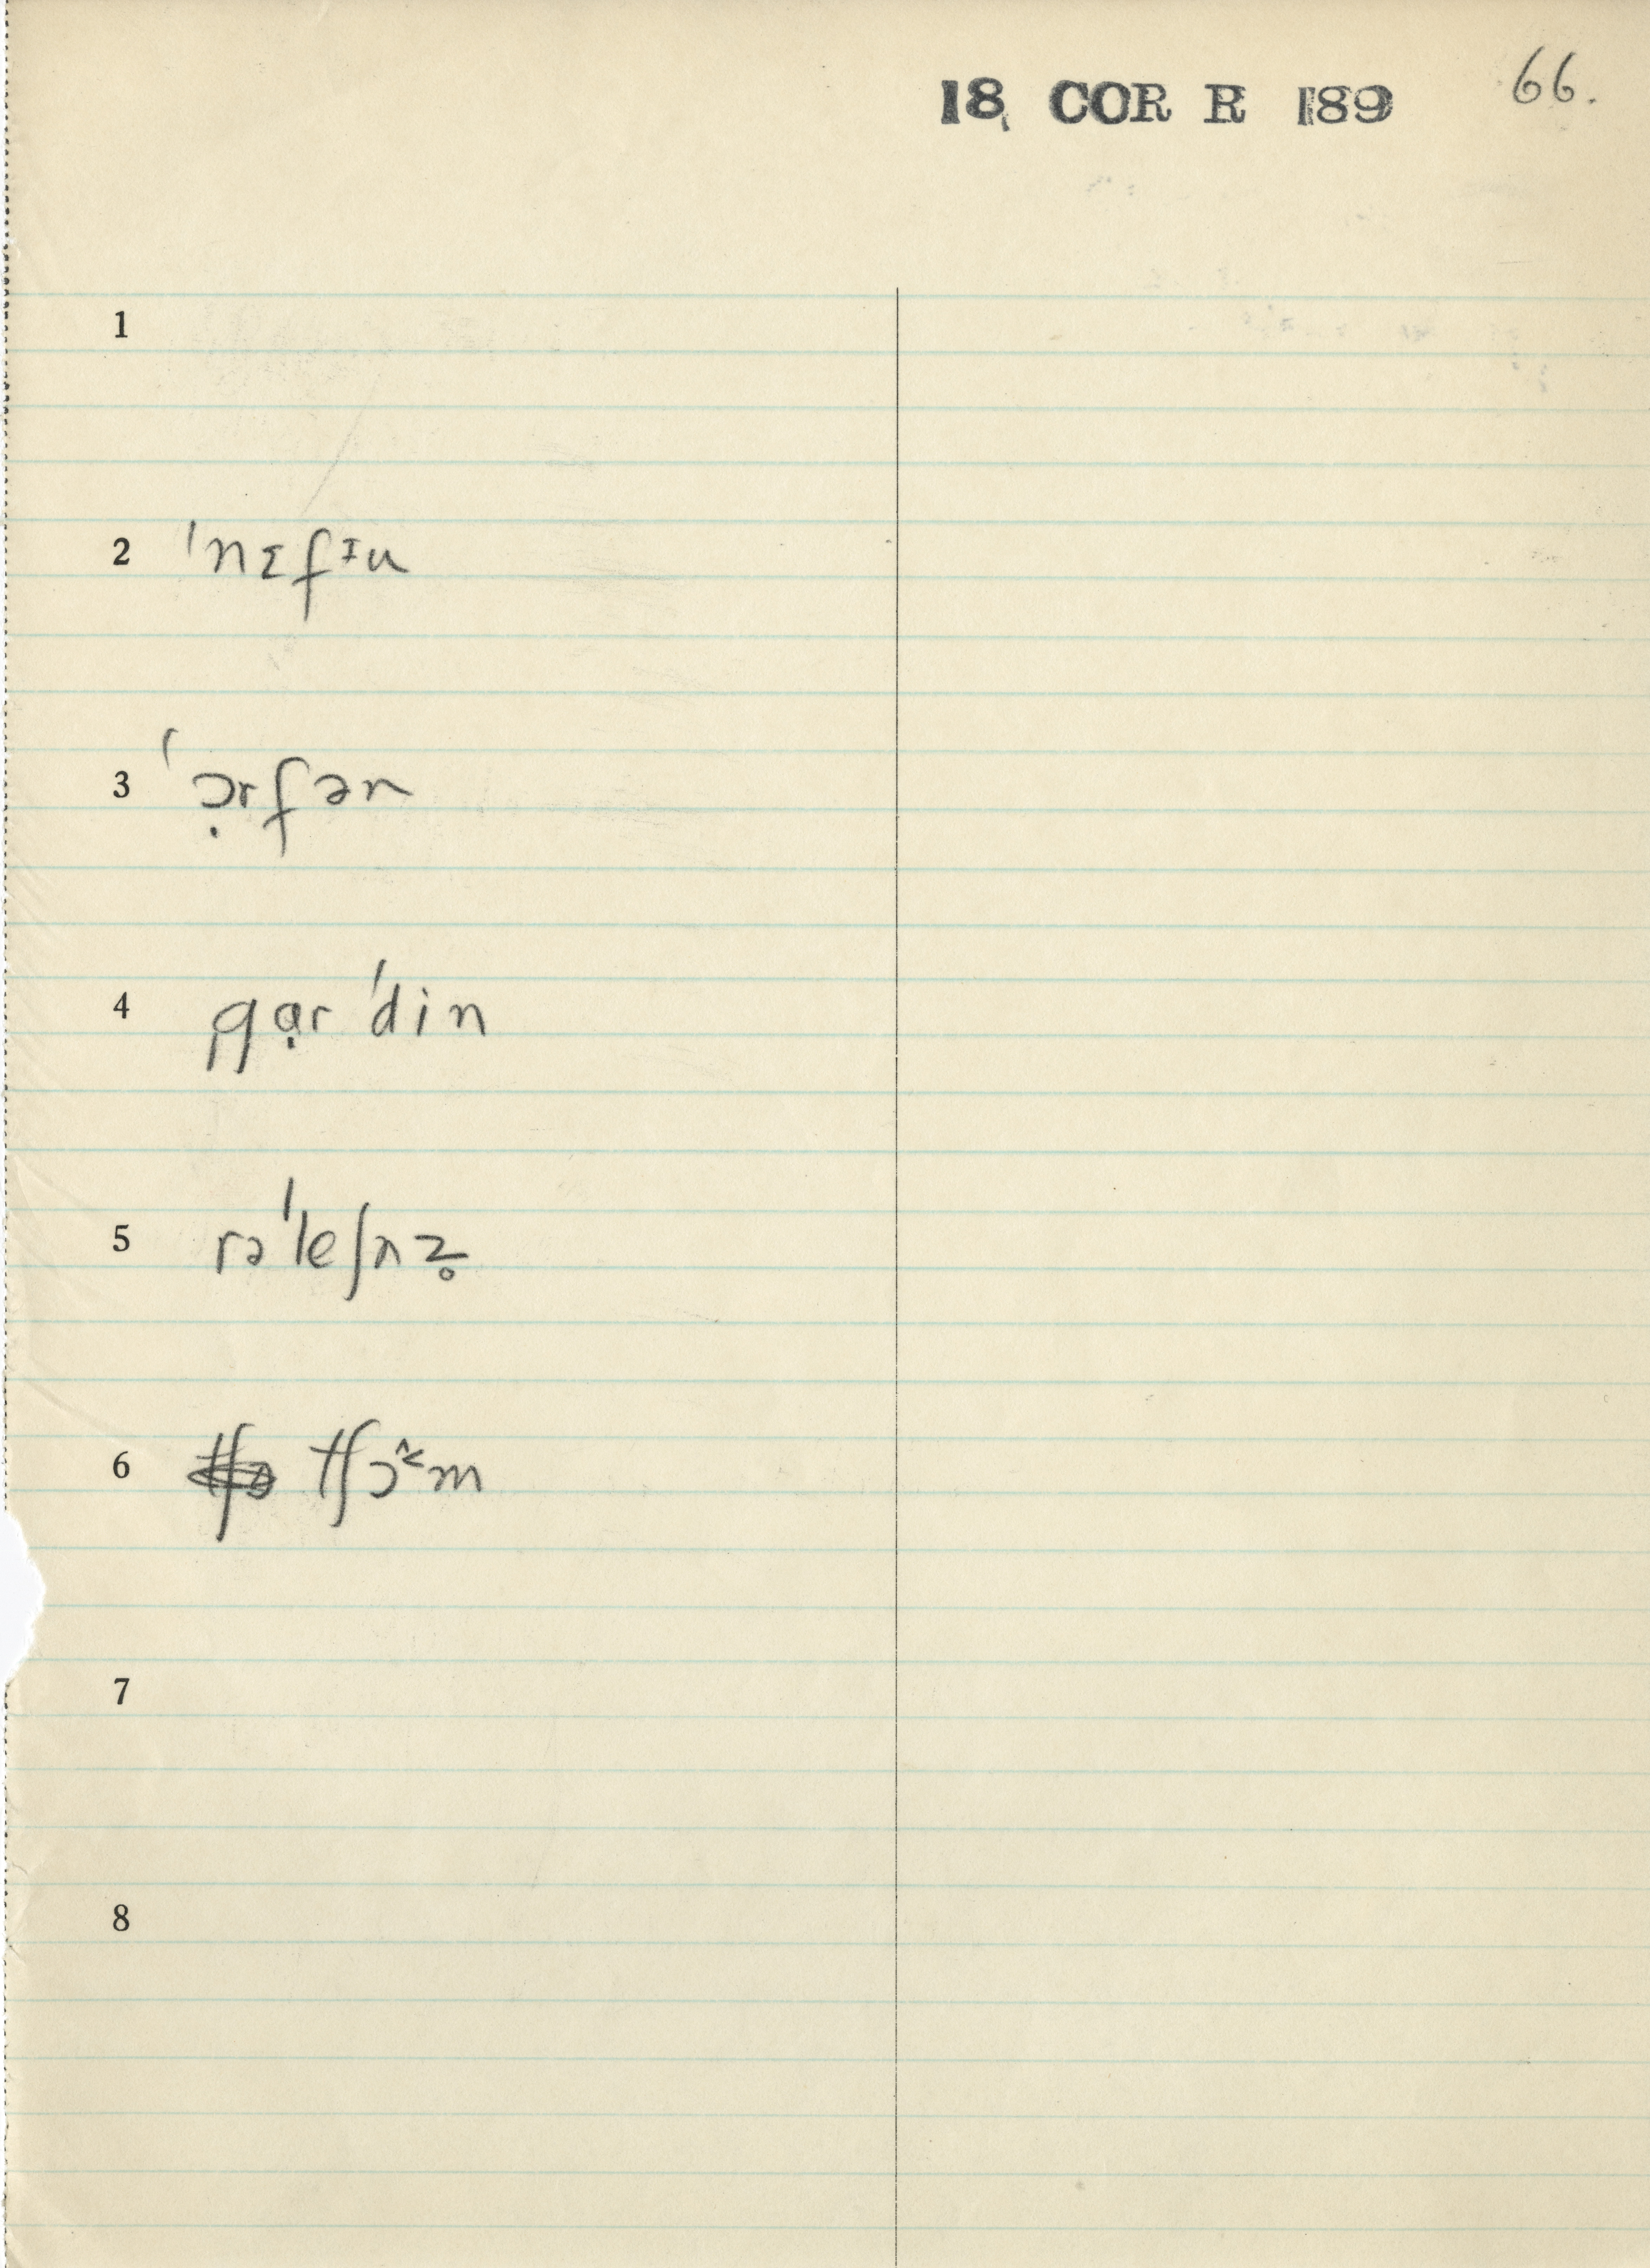 18 COR R 189 66.
1
2 ˈnɪfɪu
3 ˈɔ̣rfən
4 gạrˈdin
5 rəˈleʃnz̥
6 tʃɔ^<m
7
8